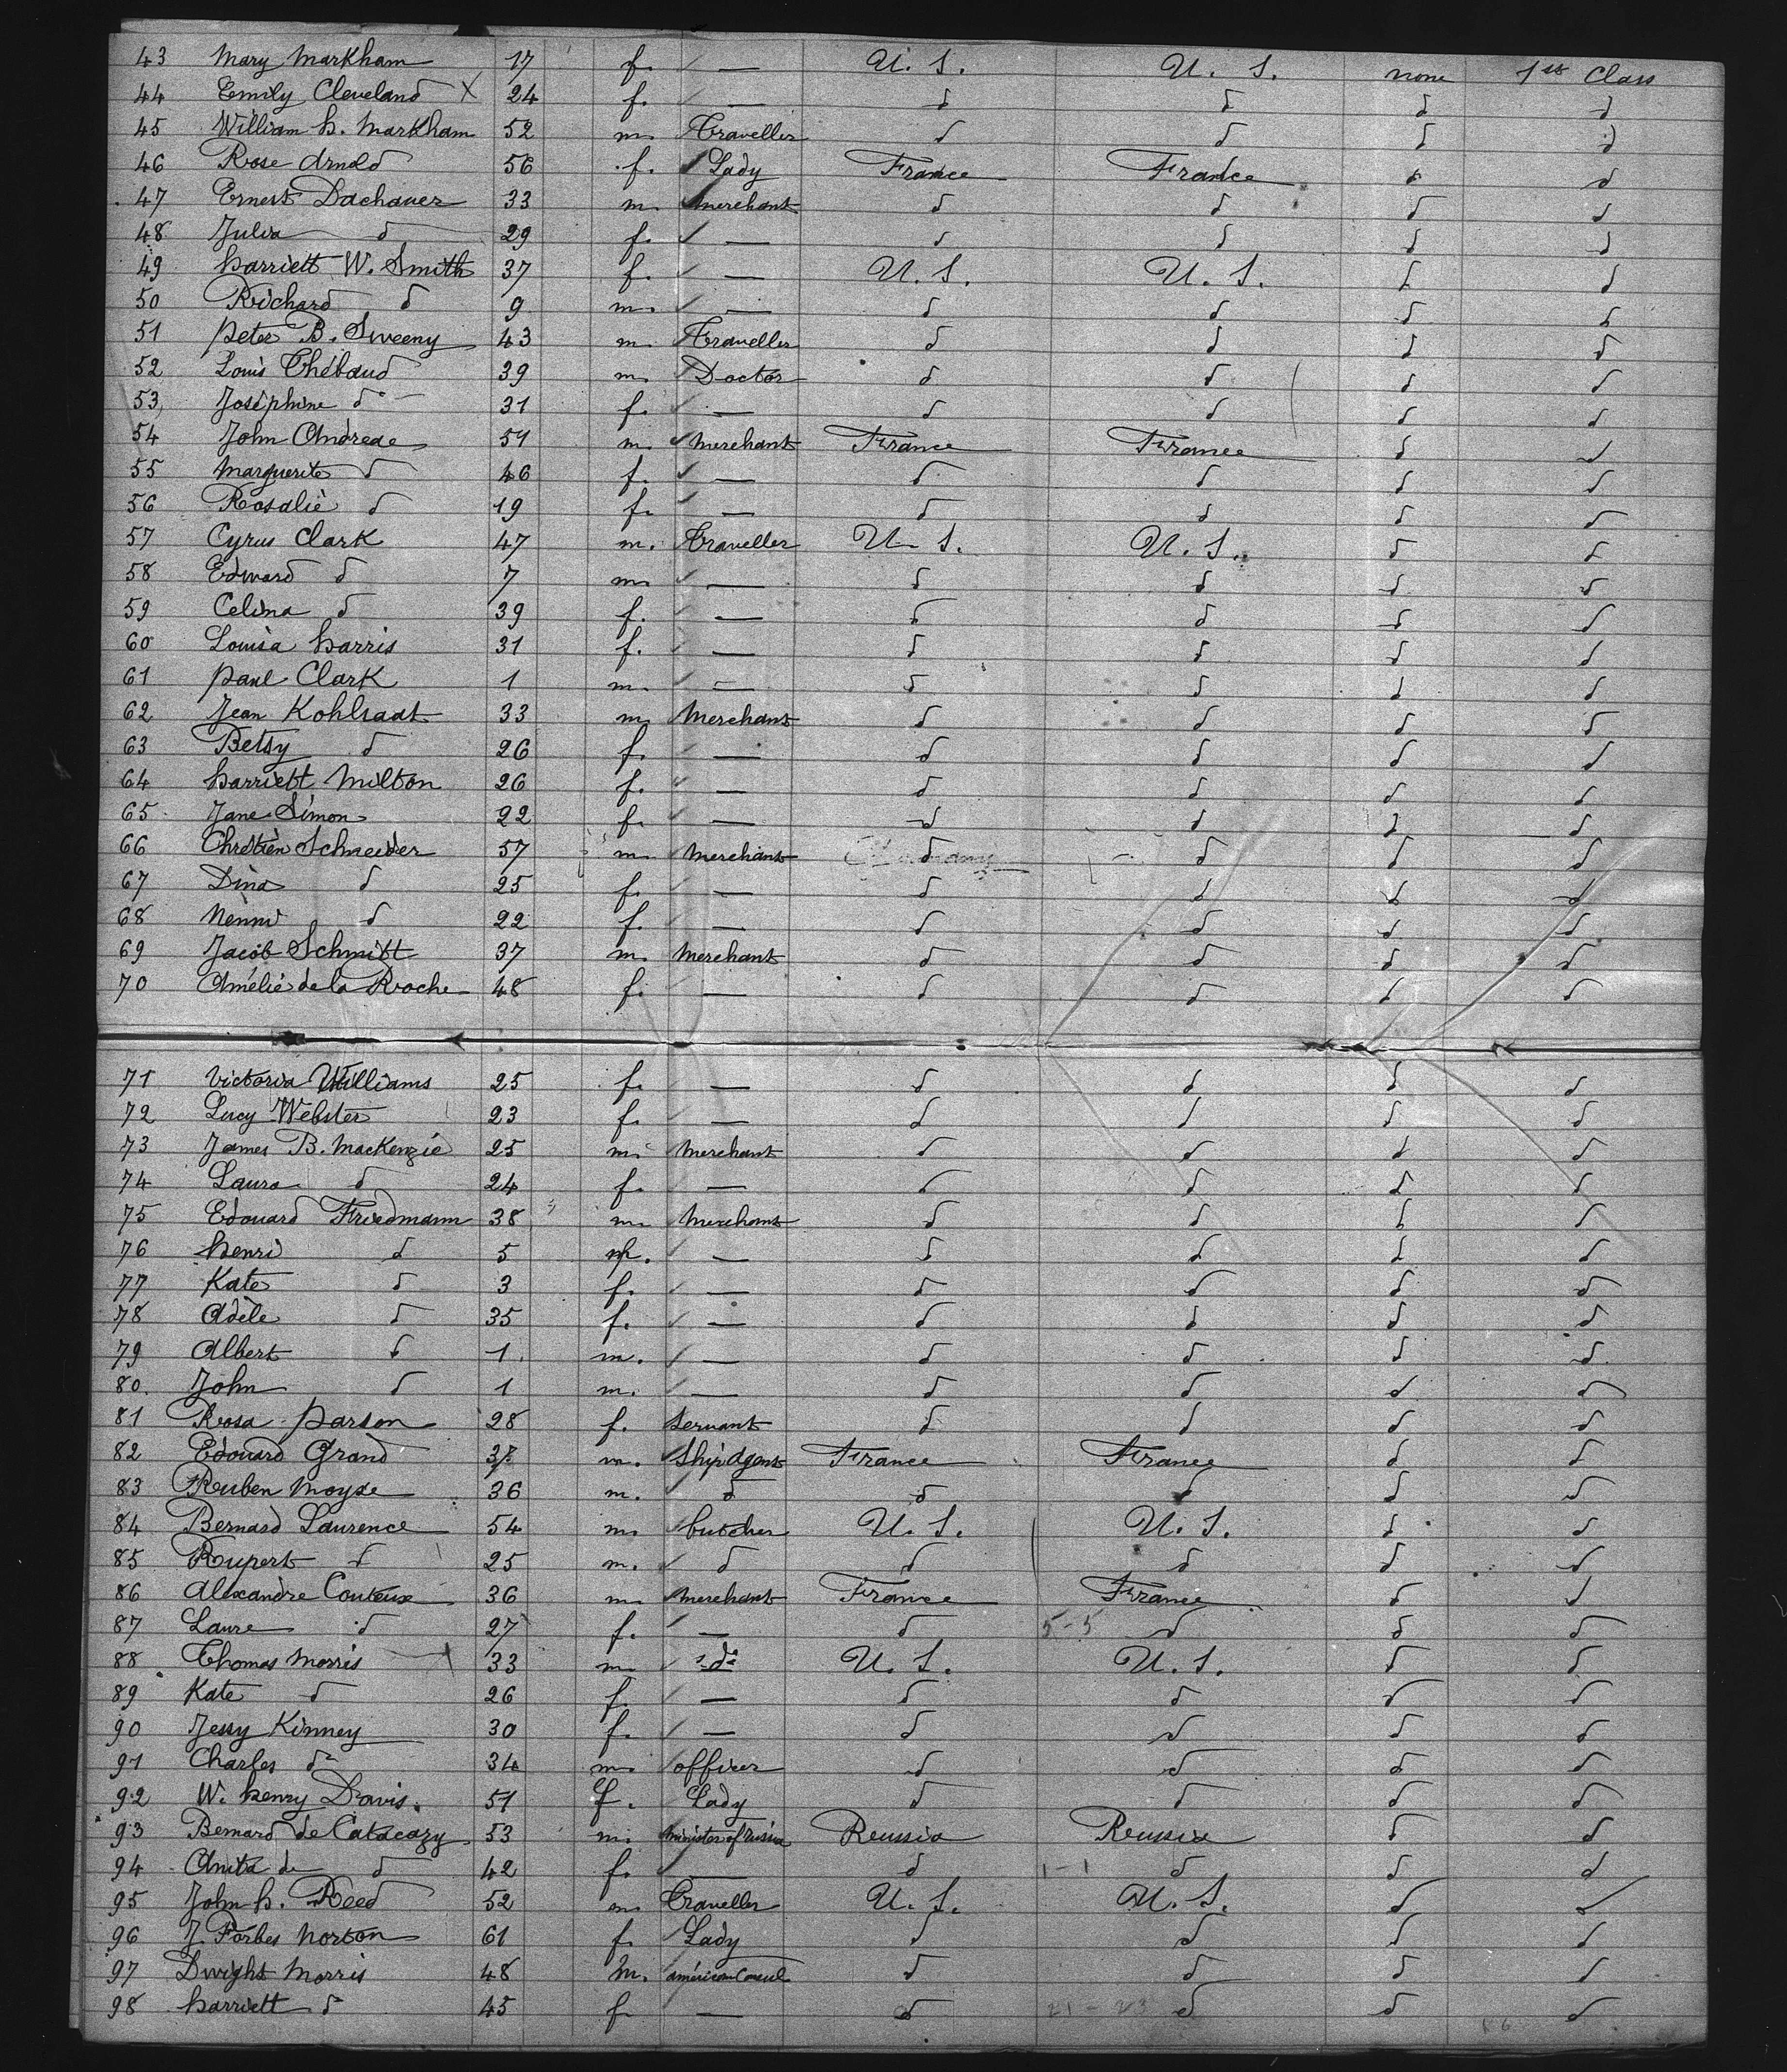 43 Mary Markham 17 f. — U. S. U. S. none 1st Class
44 Emily Cleveland X 24 f. — d d d d
45 William h. Markham 52 m. Traveller d d d d
46 Rose Arnold 56 f. Lady France France d d
47 Ernest Dachauer 33 m. merchant d d d d
48 Julia d 29 f. — d d d d
49 harriett W. Smith 37 f. — U. S. U. S. d d
50 Richard d 9 m. — d d d d
51 Peter B. Sweeny 43 m. Traveller d d d d
52 Louis Thébaud 39 m. Doctor d d d d
53 Joséphine do 31 f. — d d d d
54 John Andreae 51 m. merchant France France d d
55 Marguerite d 46 f. — d d d d
56 Rosalie d 19 f. — d d d d
57 Cyrus Clark 47 m. Traveller U. S. U. S. d d
58 Edward d 7 m. — d d d d
59 Celina d 39 f. — d d d d
60 Louisa harris 31 f. — d d d d
61 Paul Clark 1 m. — d d d d
62 Jean Kohlsaat 33 m. Merchant d d d d
63 Betsy d 26 f. — d d d d
64 harriett Milton 26 f. — d d d d
65 Jane Simon 22 f. — d d d d
66 Chrétien Schneider 57 m. merchant d d d d
67 Dina d 25 f. — d d d d
68 Nenni d 22 f. — d d d d
69 Jacob Schmitt 37 m. merchant d d d d
70 Amélie de la Roche 48 f. — d d d d
71 Victoria Williams 25 f. — d d d d
72 Lucy Webster 23 f. — d d d d
73 James B. Mackenzie 25 m. merchant d d d d
74 Laura d 24 f. — d d d d
75 Edouard Friedmann 38 m. merchant d d d d
76 henri d 5 m. — d d d d
77 Kate d 3 f. — d d d d
78 Adèle d 35 f. — d d d d
79 Albert d 1 m. — d d d d
80 John d 1 m. — d d d d
81 Rosa Parson 28 f. servant d d d d
82 Edouard Grand m. Ship Agent France France d d
83 Reuben Moyse 36 m. d d d d d
84 Bernard Laurence 54 m. butcher U. S. U. S. d d
85 Rupert d 25 m. d d d d d
86 Alexandre Couteux 36 m. merchant France France d d
87 Laure d 27 f. — d 5-5 d d d
88 Thomas Morris 33 m. do U. S. U. S. d d
89 Kate d 26 f. — d d d d
90 Jessy Kinney 30 f. — d d d d
91 Charles do 34 m. officer d d d d
92 W. henry Davis. 51 f. Lady d d d d
93 Bernard de Catacazy 53 m. minister of russia Reussia Reussia d d
94 Anita de d 42 f. — d 1-1 d d d
95 John h. Reed 52 m. Traveller U. S. U. S. d d
96 J. Forbes Norton 61 f. Lady d d d d
97 Dwight Morris 48 m. américan Consul d d d d
98 harriett d 45 f. — d 21-23 d d d